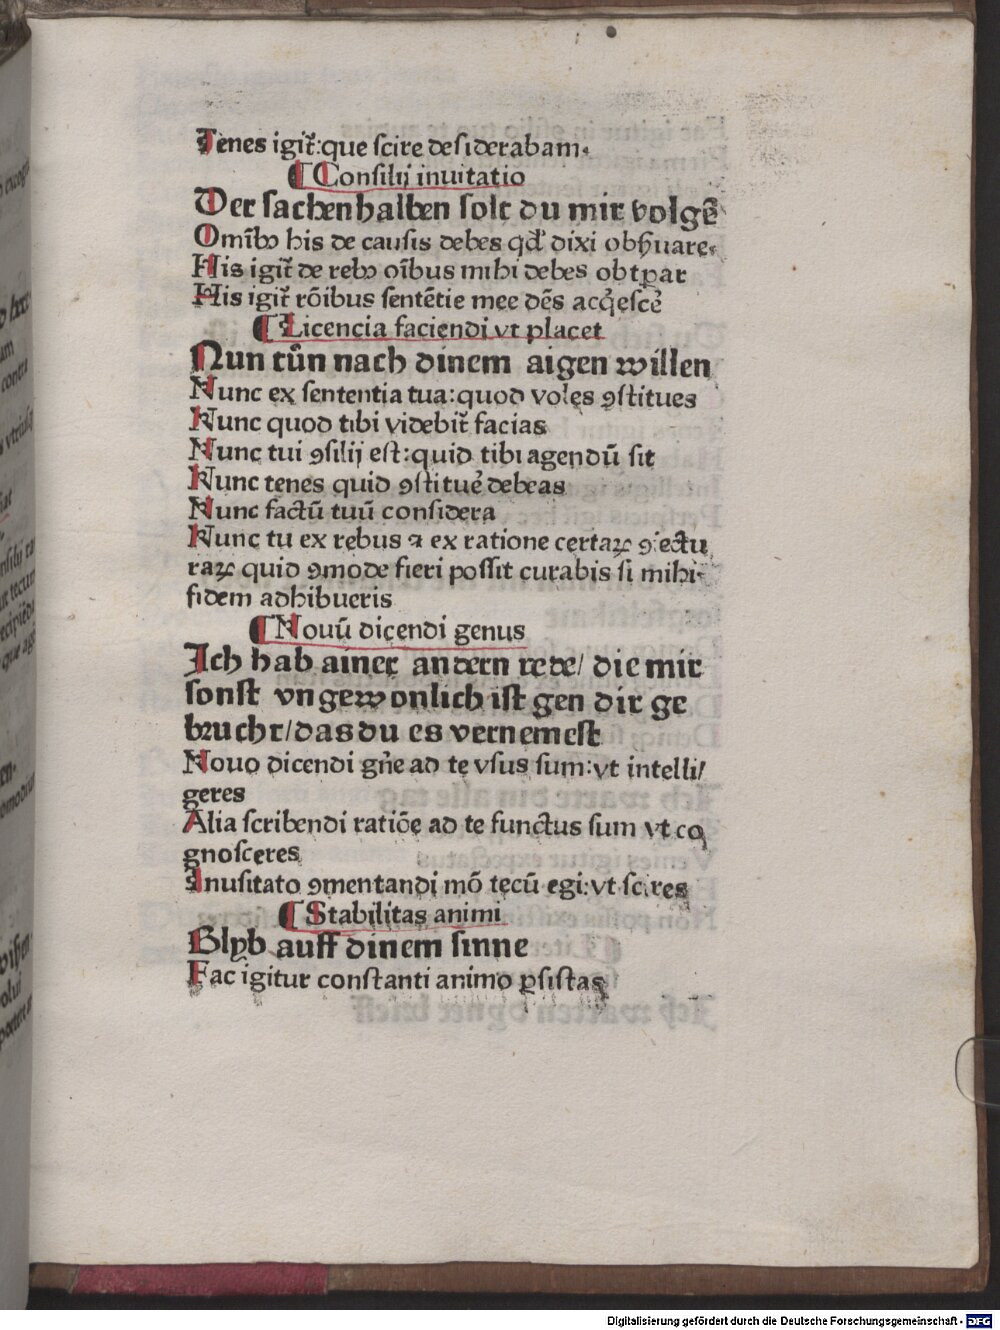 Tenes igit᷑:que scire desiderabam.
¶ Consilij inuitatio
Der sachenhalben solt du mir volgē
Omībꝰ his de causis debes qđ dixi obẜuare.
His igit᷑ de rebꝰ oībus mihi debes obtꝑar
His igit᷑ rōibus sentētie mee dēs acq̄esce᷑
¶ Licencia faciendi vt placet
Nun tůn nach dinem aigen willen
Nunc ex sententia tua:quod voles ꝯstitues
Nunc quod tibi videbit᷑ facias
Nunc tui ꝯsilij est:quid tibi agendū sit
Nunc tenes quid ꝯstitue᷑ debeas
Nunc factū tuū considera
Nunc tu ex rebus ⁊ ex ratione certaꝝ ꝯiectu
raꝝ quid ꝯmode fieri possit curabis si mihi
fidem adhibueris
¶ Nouū dicendi genus
Ich hab ainer andern rede/ die mir
sonst vngewonlich ist gen dir ge
brucht/das du es vernemest
Nouo dicendi gn̄e ad te vsus sum:vt intelli/
geres
Alia scribendi ratiōe ad te functus sum vt co
gnosceres
Inusitato ꝯmentandi mō tecū egi:vt scires
¶ Stabilitas animi
Blyb auff dinem sinne
Fac igitur constanti animo ꝑsistas
Digitalisierung gefördert durch die Deutsche Forschungsgemeinschaft - DFG